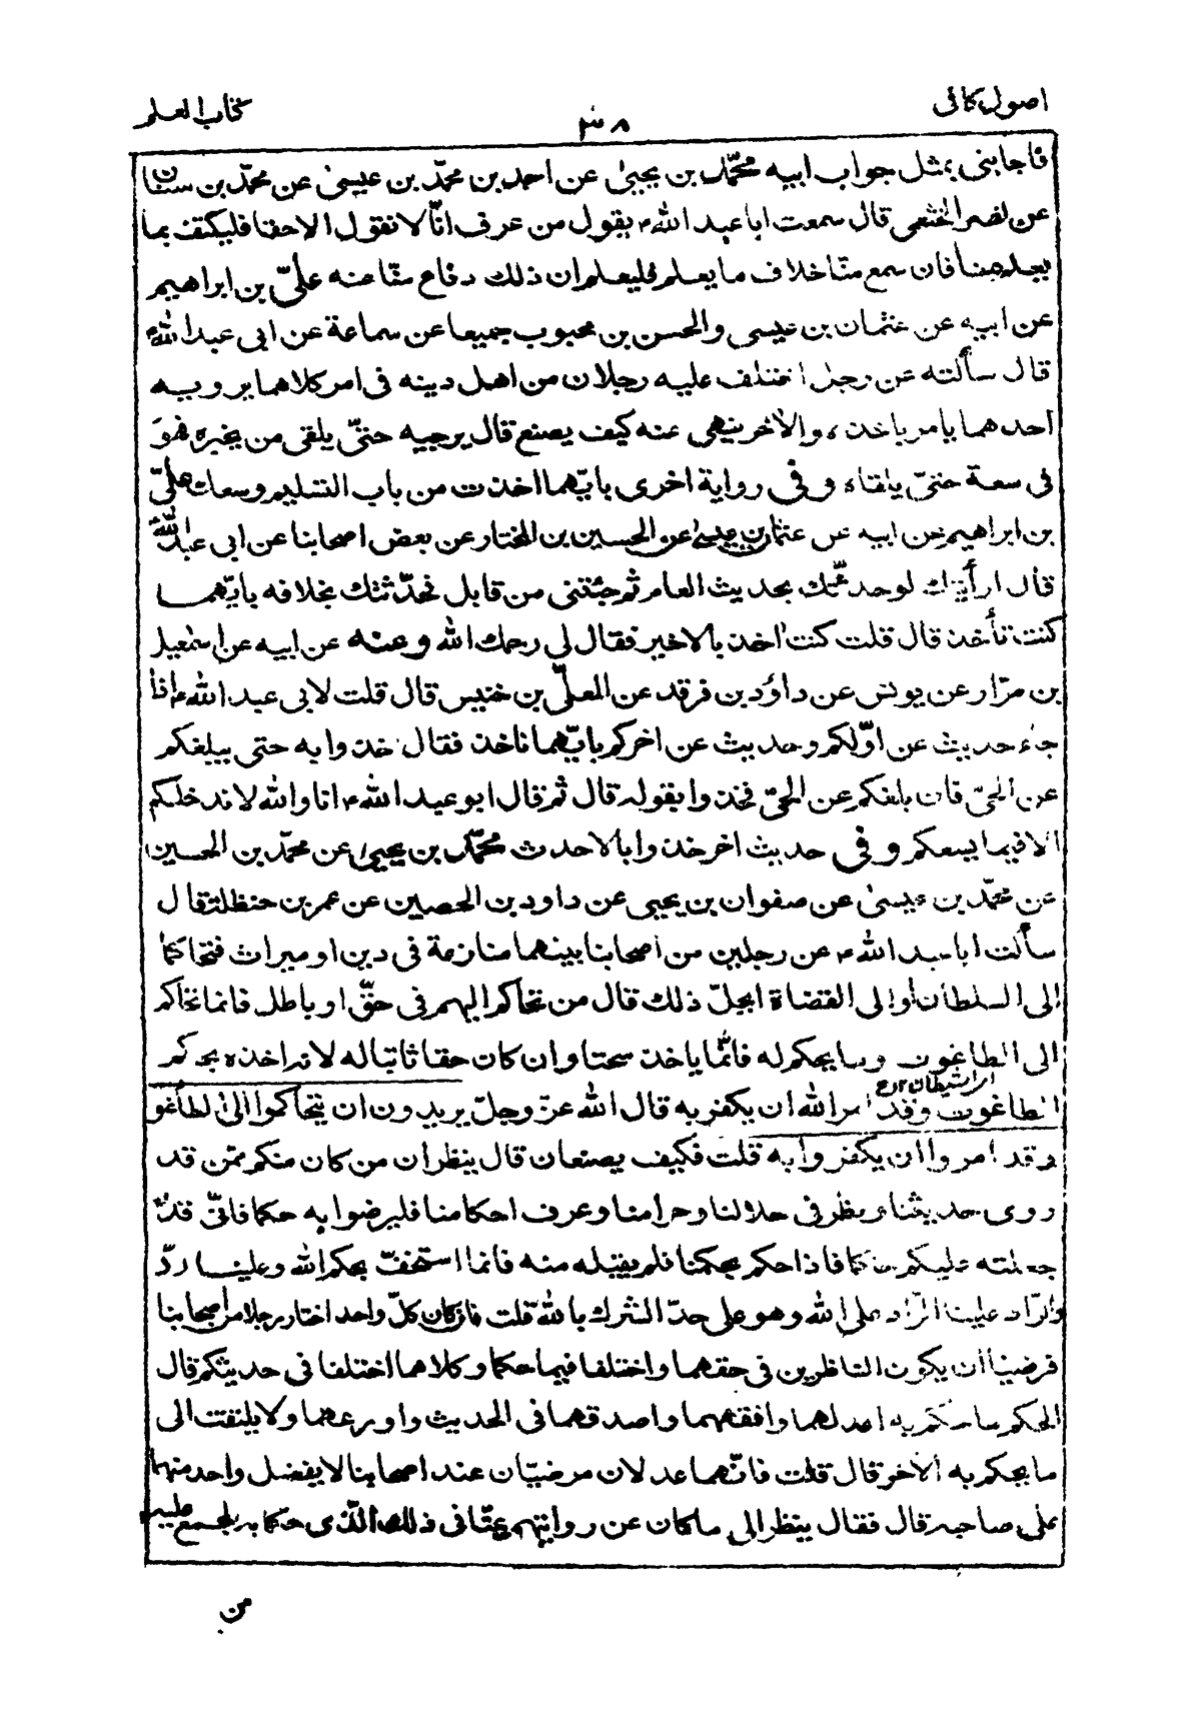 اصول كافى
٣٨
كتاب العلم
فاجابنى بمثل جواب ابيه محمّد بن يحيىٰ عن احمد بن محمّد بن عيسىٰ عن محمّد بن سنان
عن نصر الخثعمى قال سمعت ابا عبد الله ع يقول من عرف انّا لا نقول الا حقا فليكتف بما
يعلم منا فان سمع منّا خلاف ما يعلم فليعلم ان ذلك دفاع منّا عنه علىّ بن ابراهيم
عن ابيه عن عثمان بن عيسى والحسن بن محبوب جميعا عن سماعة عن ابى عبد الله ع
قال سألته عن رجل اختلف عليه رجلان من اهل دينه فى امر كلاهما يرويه
احدهما يامر باخذه والآخر ينهى عنه كيف يصنع قال يرجيه حتىّ يلقى من يخبره فهو
فى سعة حتىّ يلقاه وفى رواية اخرى بايّهما اخذت من باب التسليم وسعك علىّ
بن ابراهيم عن ابيه عن عثمان بن عيسىٰ عن الحسين بن المختار عن بعض اصحابنا عن ابى عبد الله ع
قال ارأيتك لو حدّثتك بحديث العام ثم جئتنى من قابل فحدّثتك بخلافه بايّهما
كنت تأخذ قال قلت كنت اخذ بالاخير فقال لى رحمك الله وعنه عن ابيه عن اسمعيل
بن مرّار عن يونس عن داؤد بن فرقد عن المعلّى بن خنيس قال قلت لابى عبد الله ع اذا
جاء حديث عن اوّلكم وحديث عن اخركم بايّهما ناخذ فقال خذوا به حتى يبلغكم
عن الحىّ فان بلغكم عن الحىّ فخذوا بقوله قال ثم قال ابو عبد الله ع انا والله لا ندخلكم
الا فيما يسعكم وفى حديث اخر خذوا بالاحدث محمّد بن يحيىٰ عن محمّد بن الحسين
عن محمّد بن عيسىٰ عن صفوان بن يحيى عن داود بن الحصين عن عمر بن حنظلة قال
سألت ابا عبد الله ع عن رجلين من اصحابنا بينهما منازعة فى دين او ميراث فتحاكما
الى السلطان او الى القضاة ايحلّ ذلك قال من تحاكم اليهم فى حقّ او باطل فانما تحاكم
الى الطاغوت وما يحكم له فانّما ياخذ سحتا وان كان حقا ثابتا له لانه اخذه بحكم
الطاغوت وقد امر الله ان يكفر به قال الله عزّ وجلّ يريدون ان يتحاكموا الىٰ الطاغو
وقد امروا ان يكفروا به قلت فكيف يصنعان قال ينظران من كان منكم ممّن قد
روى حديثنا ونظر فى حلالنا وحرامنا وعرف احكامنا فليرضوا به حكما فانّى قد
جعلته عليكم حاكما فاذا حكم بحكمنا فلم يقبله منه فانما استخفّ بحكم الله وعلينا ردّ
والرّاد علينا الرّاد على الله وهو على حدّ الشرك بالله قلت فان كان كلّ واحد اختار رجلا من اصحابنا
فرضيا ان يكون الناظرين فى حقهما واختلفا فيما حكما وكلاهما اختلفا فى حديثكم قال
الحكم ما حكم به اعدلهما وافقههما واصدقهما فى الحديث واورعهما ولا يلتفت الى
ما يحكم به الآخر قال قلت فانّهما عدلان مرضيّان عند اصحابنا لا يفضل واحد منهما
على صاحبه قال فقال ينظر الى ما كان عن روايتهم عنّا فى ذلك الّذى حكما به المجمع عليه
من